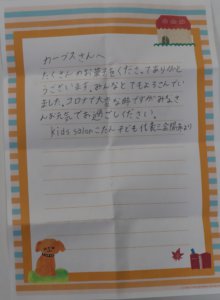 カーブスさんへ
たくさんのお菓子をくださってありがと
うございます。みんなとてもよろこんでい
ました。コロナで大変な時ですがみなさ
んお元気でお過ごしください。
Kids salon こたん 子ども 代表 三